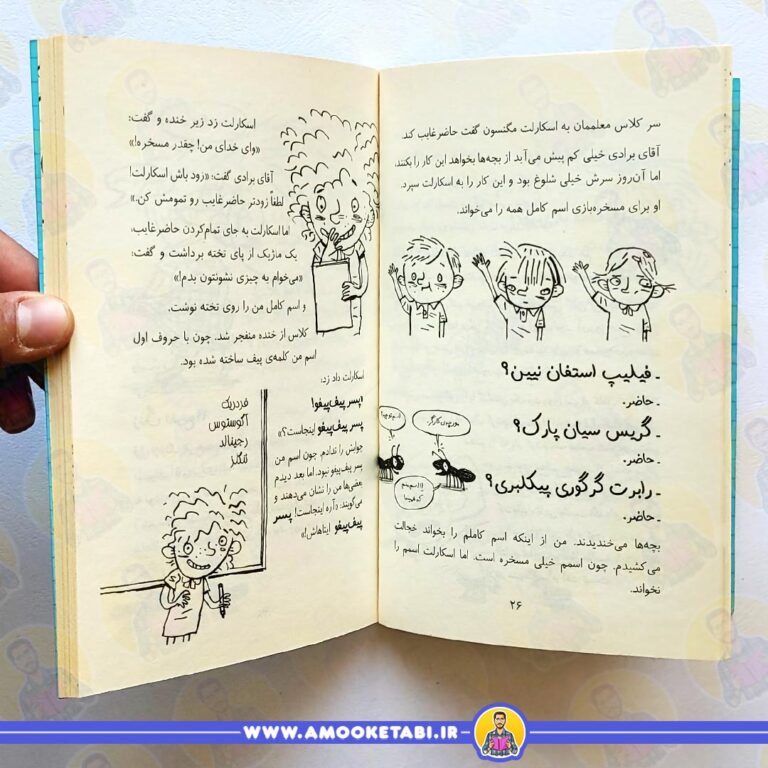 سر کلاس معلممان به اسکارلت مگنسون گفت حاضرغایب کند.
آقای برادی خیلی کم پیش می‌آید از بچه‌ها بخواهد این کار را بکنند.
اما آن‌روز سرش خیلی شلوغ بود و این کار را به اسکارلت سپرد.
او برای مسخره‌بازی اسم کامل همه را می‌خواند.
ـ فیلیپ استفان نیین؟
ـ حاضر.
ـ گریس سیان پارک؟
ـ حاضر.
ـ رابرت گرگوری پیکلبری؟
ـ حاضر.
بچه‌ها می‌خندیدند. من از اینکه اسم کاملم را بخواند خجالت
می‌کشیدم. چون اسمم خیلی مسخره است. اما اسکارلت اسمم را
نخواند.
۲۶
اسکارلت زد زیر خنده و گفت:
«وای خدای من! چقدر مسخره!»
آقای برادی گفت: «زود باش اسکارلت!
لطفاً زودتر حاضرغایب رو تمومش کن.»
اما اسکارلت به جای تمام‌کردن حاضرغایب،
یک ماژیک از پای تخته برداشت و گفت:
«می‌خوام یه چیزی نشونتون بدم!»
و اسم کامل من را روی تخته نوشت.
کلاس از خنده منفجر شد. چون با حروف اول
اسم من کلمه‌ی پیف ساخته شده بود.
اسکارلت داد زد:
«پسر پیف‌پیفو!
پسر پیف‌پیفو اینجاست؟»
جوابش را ندادم. چون اسم من
پسر پیف‌پیفو نبود. اما بعد دیدم
بعضی‌ها من را نشان می‌دهند و
می‌گویند: «آره اینجاست! پسر
پیف‌پیفو ایناهاش!»
فردریک
آگوستوس
رجینالد
تنگلز
WWW.AMOOKETABI.IR